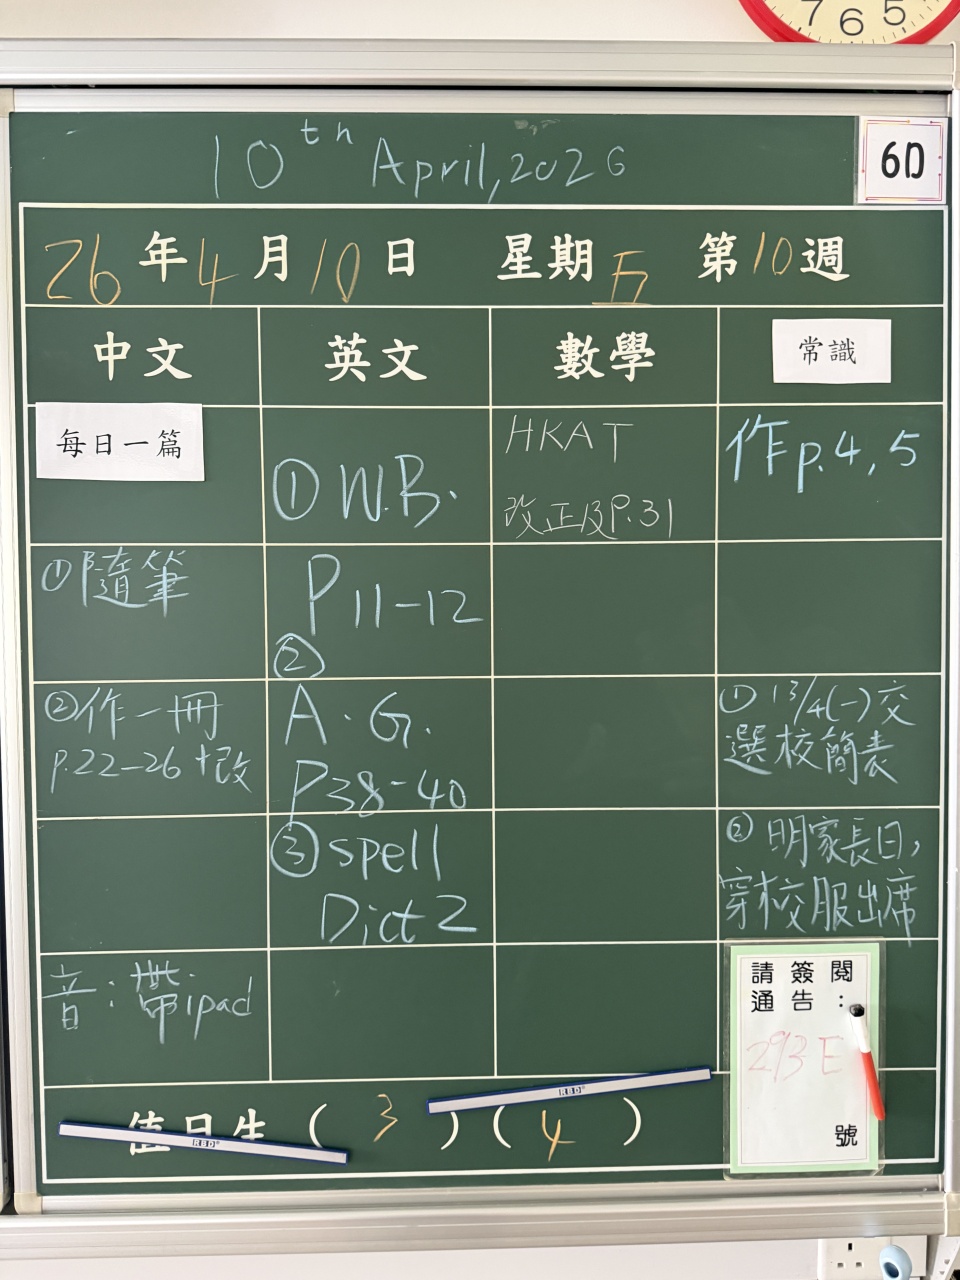 7 6 5
10th April, 2026
6D
26年4月10日 星期五 第10週
中文
英文
數學
常識
每日一篇
①隨筆
②作一冊
p.22-26+改
音:帶ipad
①W.B.
P11-12
②
A.G.
P38-40
③spell
Dict 2
HKAT
改正及P.31
作p.4,5
①13/4(一)交
選校簡表
②明家長日,
穿校服出席
請簽閱
通告:
293E
號
值日生(3)(4)
RBD
RBD